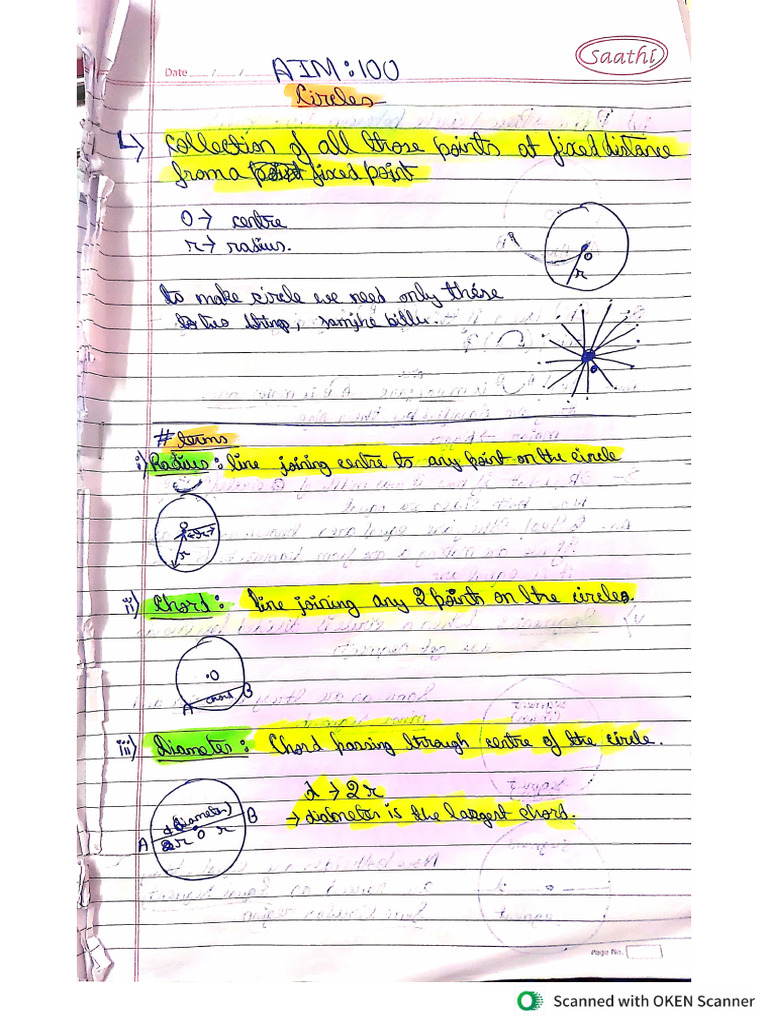 Saathi
Date ___/___/___ AIM:100
Circles
↳ collection of all those points at fixed distance
from a fixed point
O → centre
r → radius.
O
r
to make circle we need only these
two things, samjhe billu.
O
# terms
i) Radius: line joining centre to any point on the circle
r
r
ii) Chord: line joining any 2 points on the circle.
.O
A chord B
iii) Diameter: Chord passing through centre of the circle.
d → 2r
→ diameter is the largest chord.
d(Diameter)
A r O r B
Page No.
Scanned with OKEN Scanner